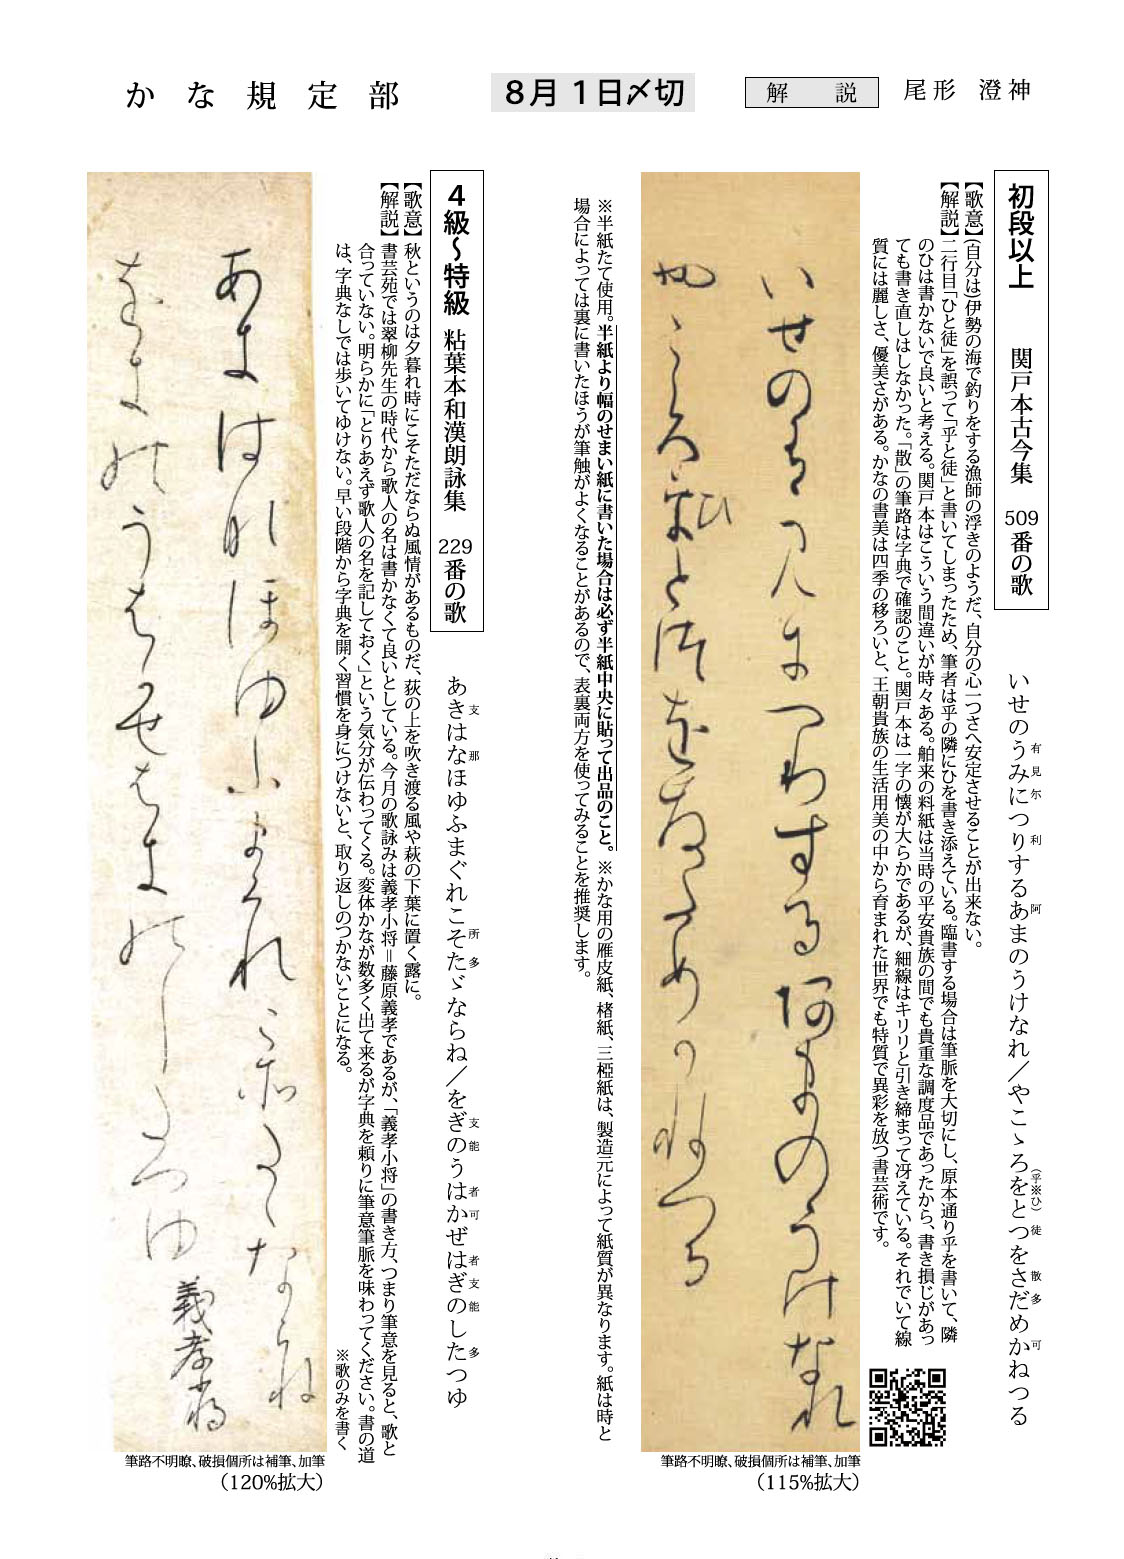 かな規定部
8月1日〆切
解 説
尾形 澄神
初段以上 関戸本古今集 509番の歌
いせのうみにつりするあまのうけなれ／やこゝろをとつをさだめかねつる
有見尓利阿(乎※ひ)徒散多可
【歌意】(自分は)伊勢の海で釣りをする漁師の浮きのようだ、自分の心一つさへ安定させることが出来ない。
【解説】二行目「ひと徒」を誤って「乎と徒」と書いてしまったため、筆者は乎の隣にひを書き添えている。臨書する場合は筆脈を大切にし、原本通り乎を書いて、隣
のひは書かないで良いと考える。関戸本はこういう間違いが時々ある。舶来の料紙は当時の平安貴族の間でも貴重な調度品であったから、書き損じがあっ
ても書き直しはしなかった。「散」の筆路は字典で確認のこと。関戸本は一字の懐が大らかであるが、細線はキリリと引き締まって冴えている。それでいて線
質には麗しさ、優美さがある。かなの書美は四季の移ろいと、王朝貴族の生活用美の中から育まれた世界でも特質で異彩を放つ書芸術です。
いせのうみにつりするあまのうけなれ
やこゝろ乎とつをさだめかねつる
ひ
筆路不明瞭、破損個所は補筆、加筆
（115%拡大）
※半紙たて使用。半紙より幅のせまい紙に書いた場合は必ず半紙中央に貼って出品のこと。※かな用の雁皮紙、楮紙、三椏紙は、製造元によって紙質が異なります。紙は時と
場合によっては裏に書いたほうが筆触がよくなることがあるので、表裏両方を使ってみることを推奨します。
4級〜特級 粘葉本和漢朗詠集 229番の歌
あきはなほゆふまぐれこそたゞならね／をぎのうはかぜはぎのしたつゆ
支那所多支能者可者支能多
【歌意】秋というのは夕暮れ時にこそただならぬ風情があるものだ、荻の上を吹き渡る風や萩の下葉に置く露に。
【解説】書芸苑では翠柳先生の時代から歌人の名は書かなくて良いとしている。今月の歌詠みは義孝小将＝藤原義孝であるが、「義孝小将」の書き方、つまり筆意を見ると、歌と
合っていない。明らかに「とりあえず歌人の名を記しておく」という気分が伝わってくる。変体かなが数多く出て来るが字典を頼りに筆意筆脈を味わってください。書の道
は、字典なしでは歩いてゆけない。早い段階から字典を開く習慣を身につけないと、取り返しのつかないことになる。
※歌のみを書く
あきはなほゆふまくれこそたゝならね
をきのうはかせはきのしたつゆ
義孝小将
筆路不明瞭、破損個所は補筆、加筆
（120%拡大）